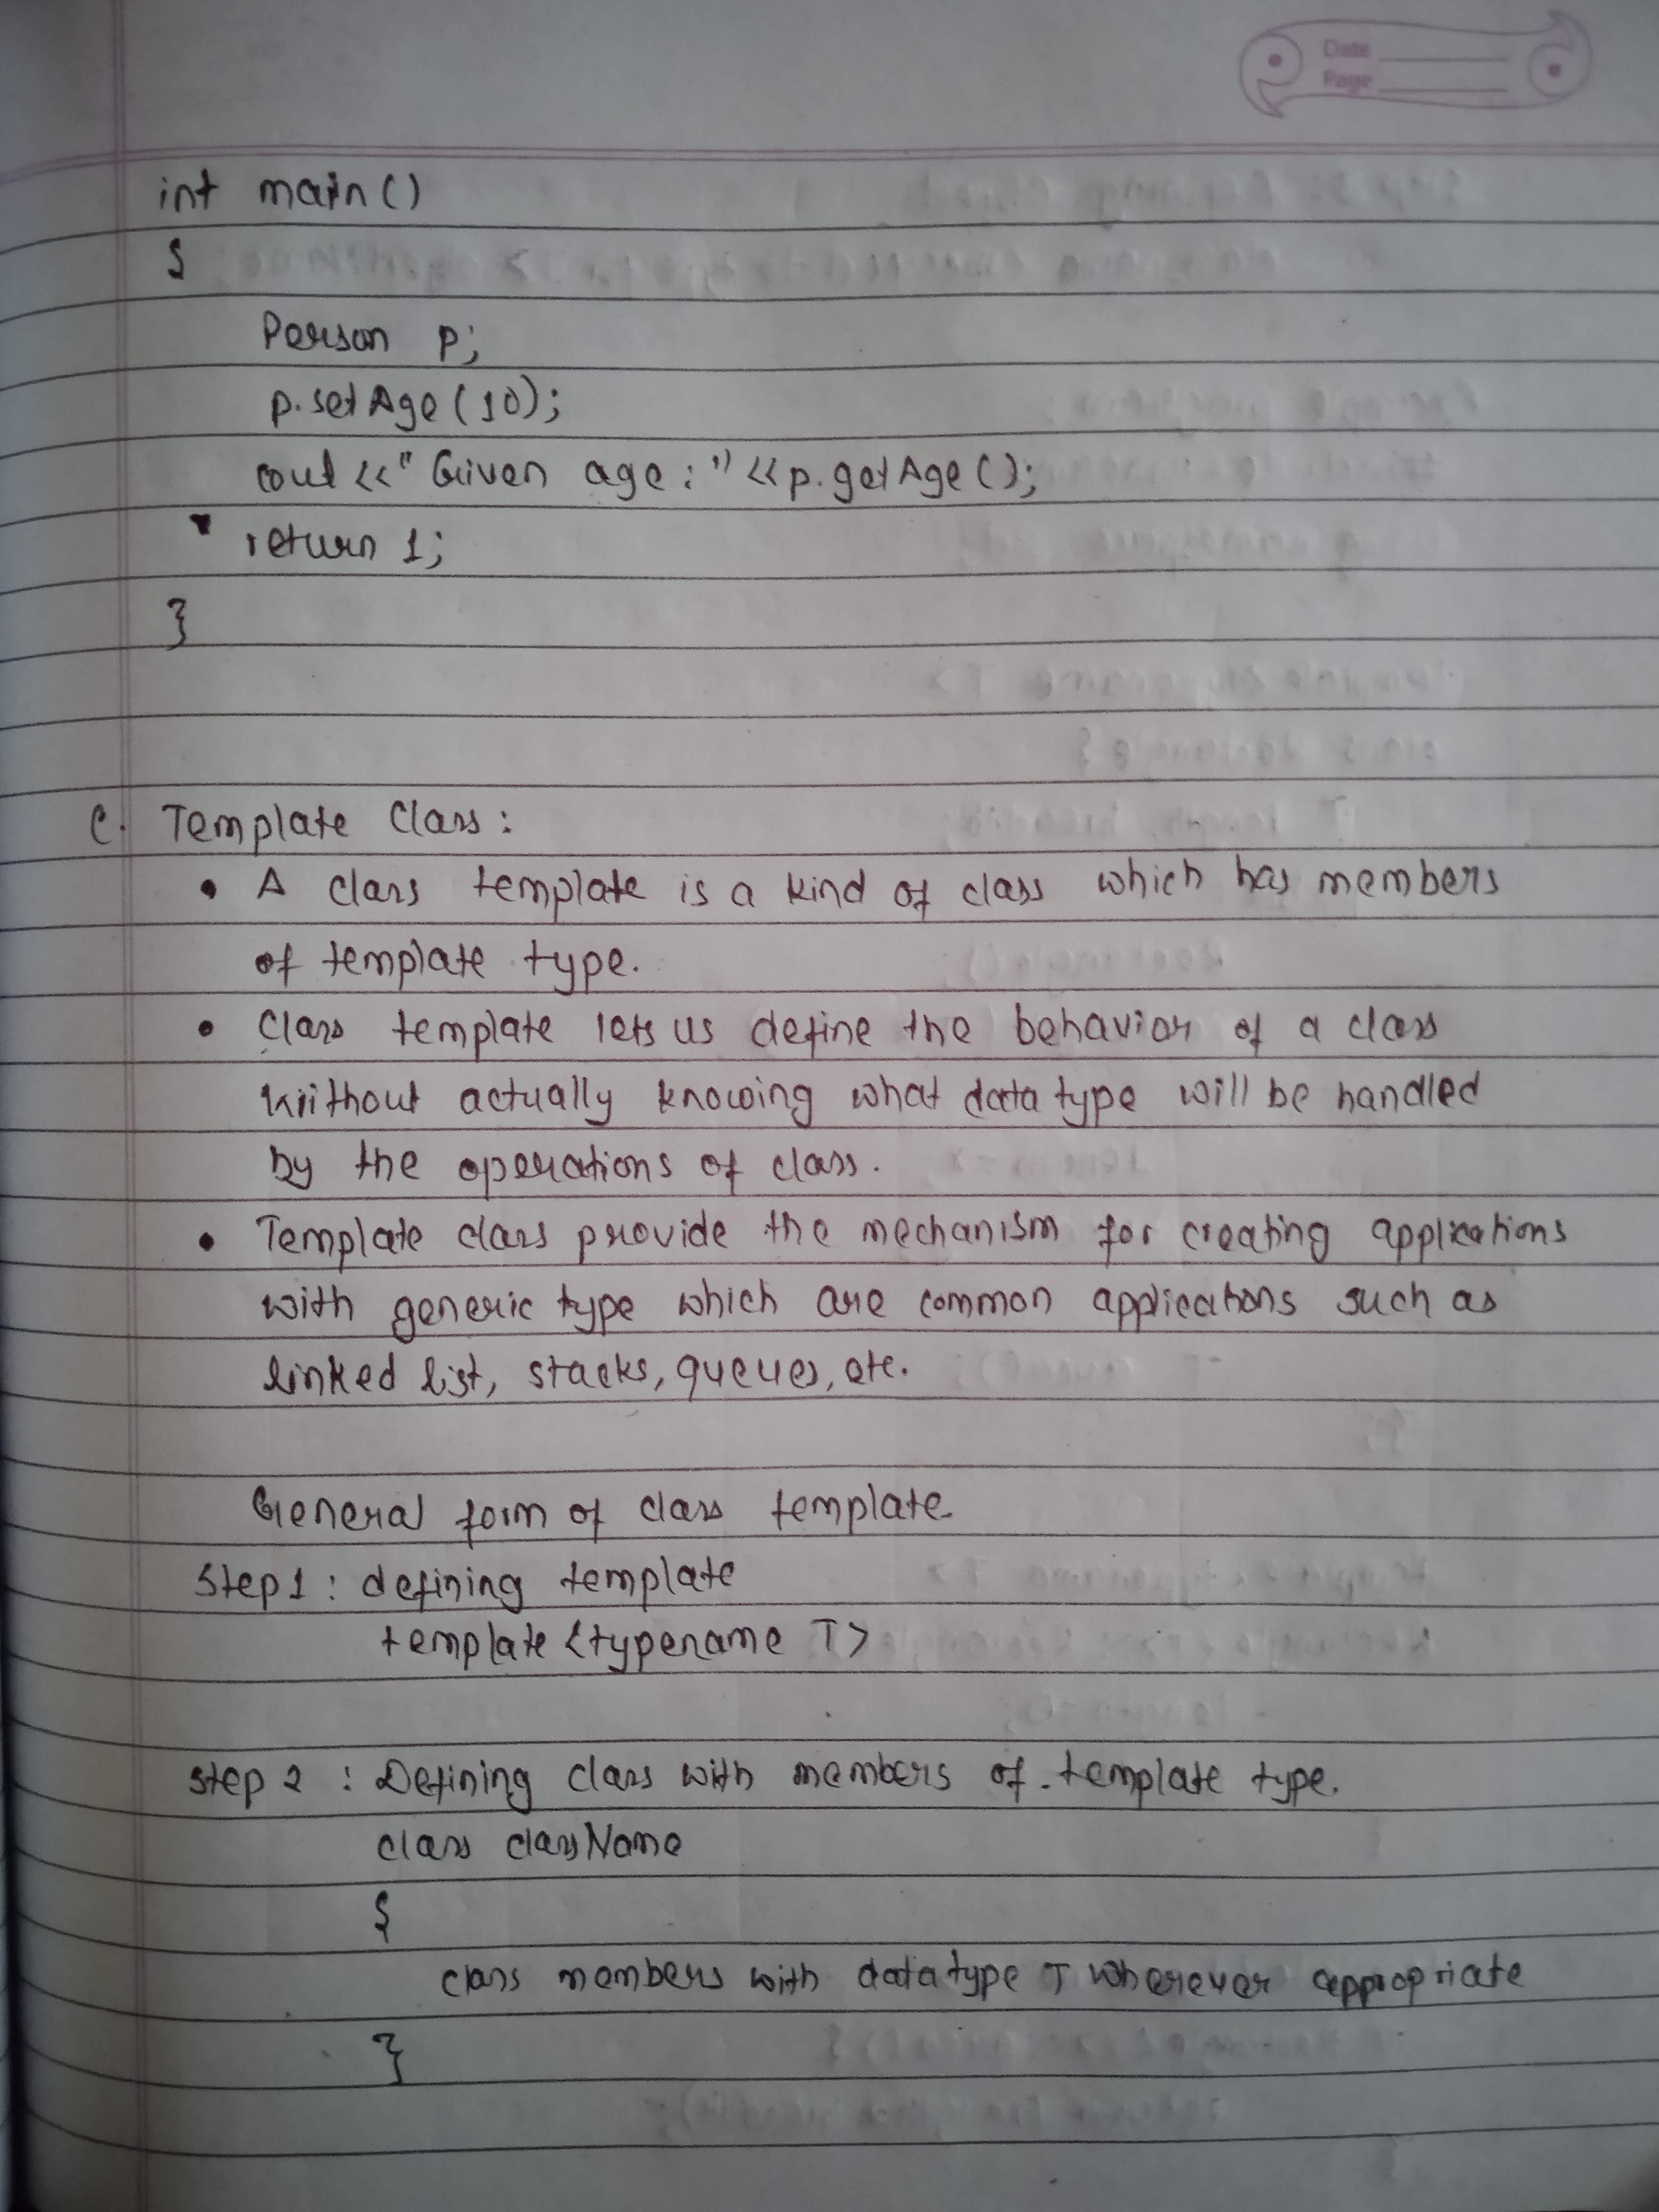 Date
Page
int main()
{
Person p;
p.setAge(10);
cout<<"Given age:"<<p.getAge();
return 1;
}
C. Template Class:
• A class template is a kind of class which has members
of template type.
• Class template lets us define the behavior of a class
without actually knowing what datatype will be handled
by the operations of class.
• Template class provide the mechanism for creating applications
with generic type which are common applications such as
linked list, stacks, queues, etc.
General form of class template.
Step1: defining template
template<typename T>
step 2: Defining class with members of template type.
class className
{
class members with datatype T wherever appropriate
}